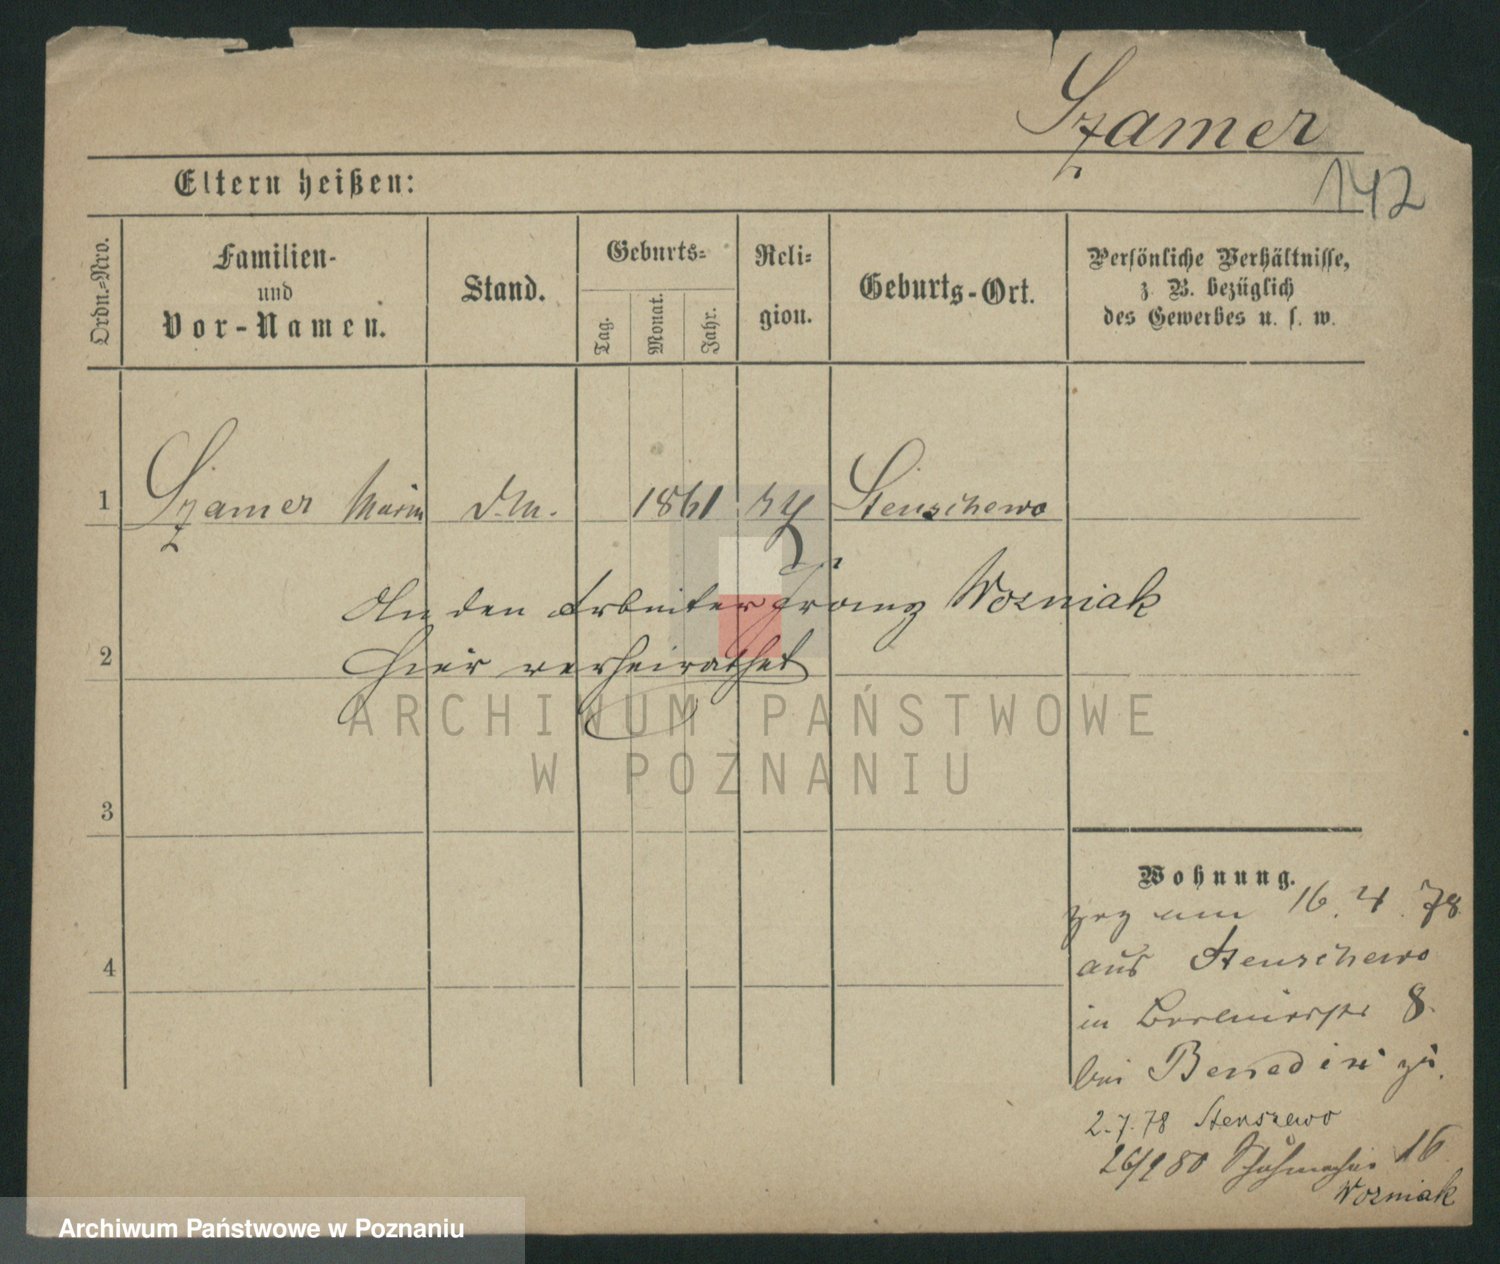 Szamer
142
Eltern heißen:
Ordn.-Nro.
Familien-
und
Vor-Namen.
Stand.
Geburts-
Tag.
Monat.
Jahr.
Reli-
gion.
Geburts-Ort.
Persönliche Verhältnisse,
z. B. bezüglich
des Gewerbes u. s. w.
1 Szamer Marin d. M. 1861 Stenschewo
An den Arbeiter Franz Wozniak
2 hier verheirathet
ARCHIWUM PAŃSTWOWE
W POZNANIU
3
Wohnung.
zog am 16. 4. 78
aus Stenschewo
4
in 8.
bei Benedix zu.
2.7.78 Stenszewo
26/9 80 16
Wozniak
Archiwum Państwowe w Poznaniu